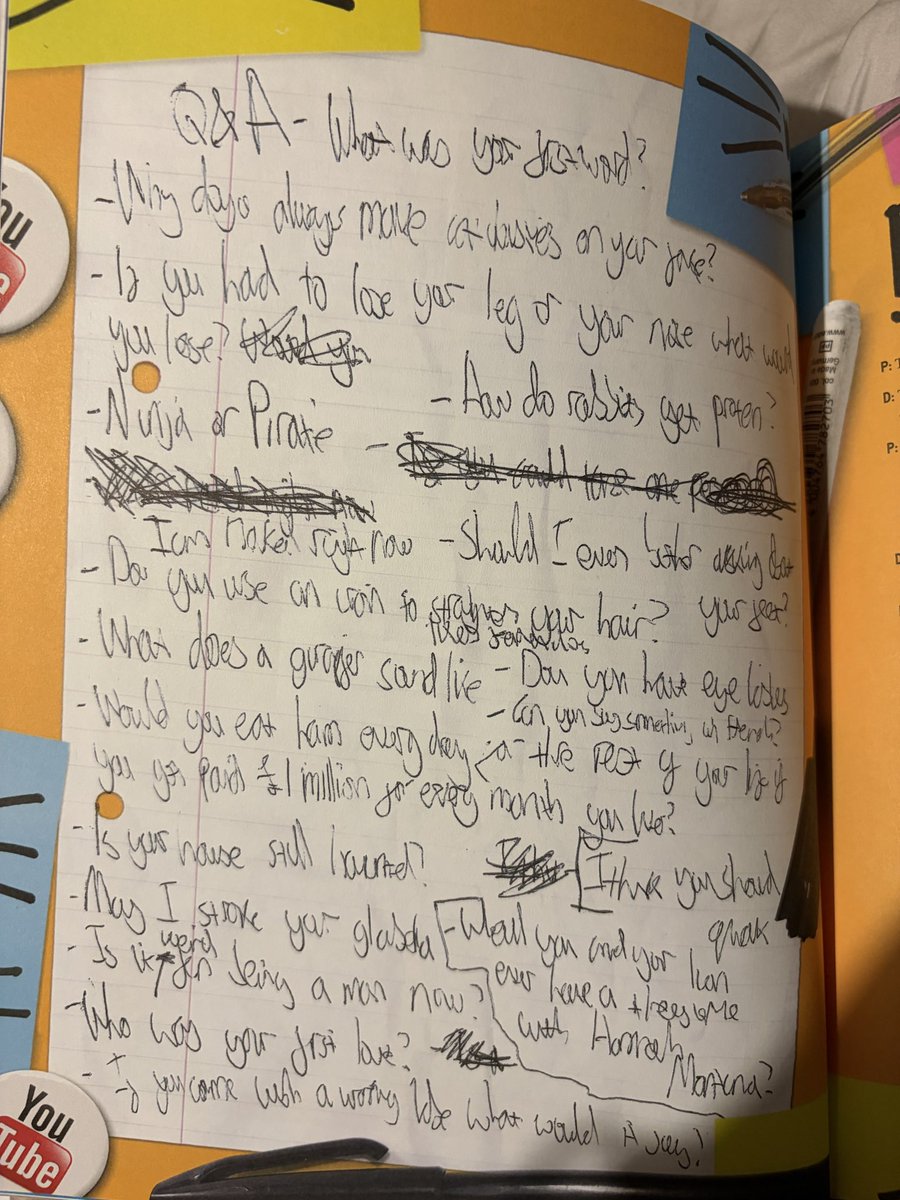 Q&A - What was your first word?
- Why do you always make cat noises on your
- If you had to lose your leg or your nose what would
you lose?
- Ninja or Pirate
- How do rabbits get proten?
- If you could one
I am naked right now
- Should I even bother asking about
your feet?
- Do you use an iron to your hair?
- What does a sound like
- Do you have eye lashes
- Can you say something in French?
- Would you eat ham every day 4 a the rest of your life if
you got paid £1 million for every month you live?
- Is your house still haunted?
I think you should
quak
- May I stroke your glabella
- Is it weird being a man now?
- Will you and your
ever have a threesome
with Hannah
Montana?
- Who was your first love?
- If you came with a warning what would it say?
You
Tube
P:
D:
P:
Made in
Germany
www.